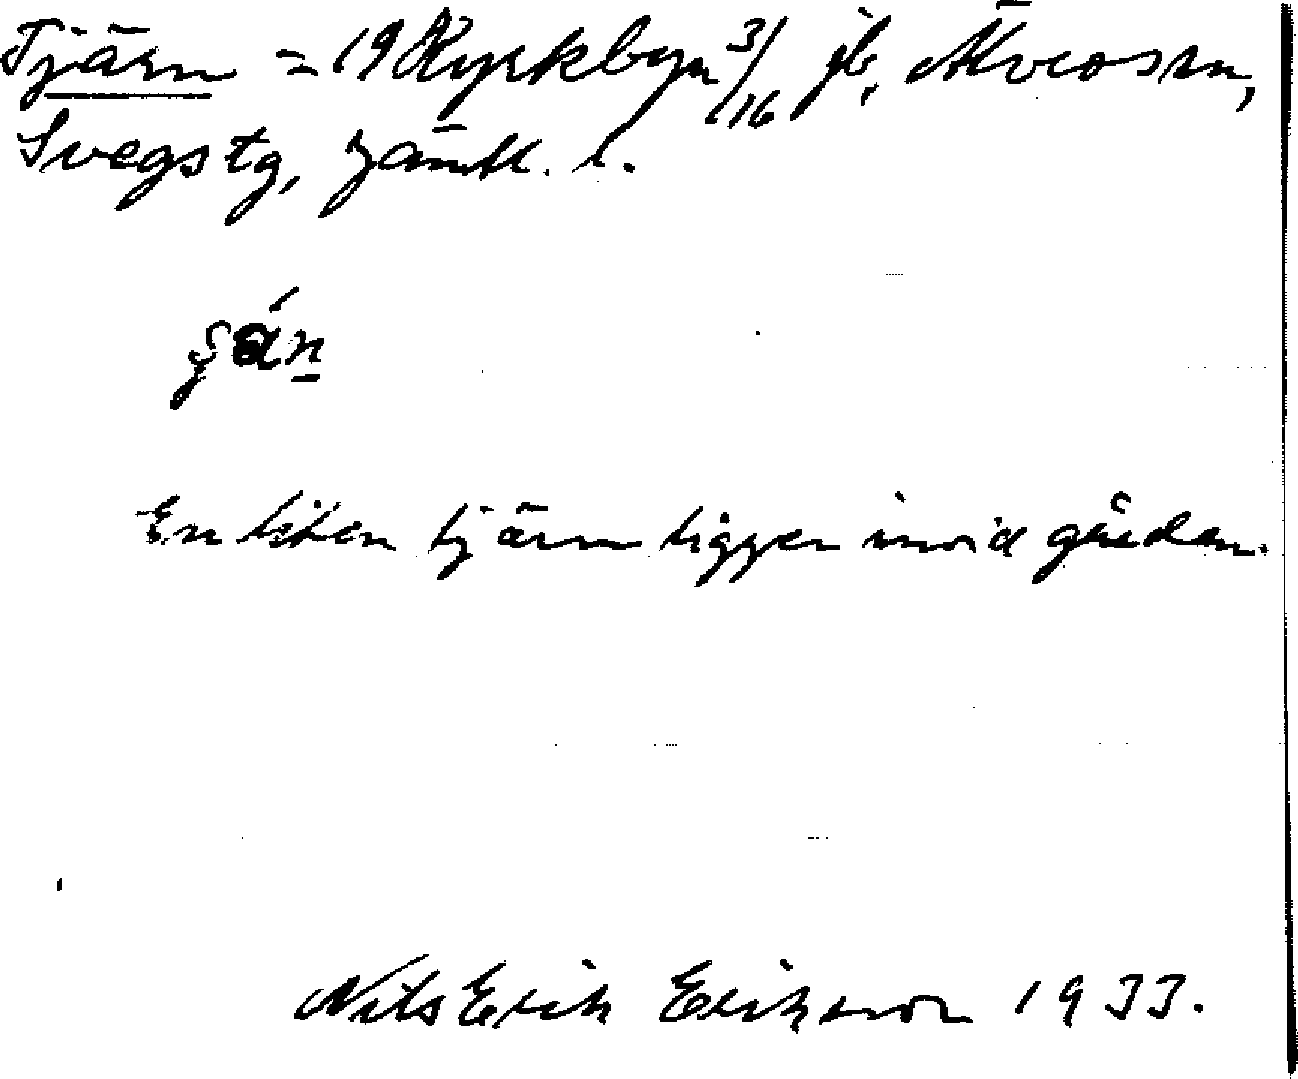 Tjärn = 19 Kyrkbyn 3/16 jb, Älvros sn,
Svegs tg, Jämtl. l.
En liten tjärn ligger invid gården.
Nils Erik Erikson 1933.